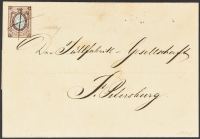 Die Tüllfabrik-Gesellschaft
St. Petersburg